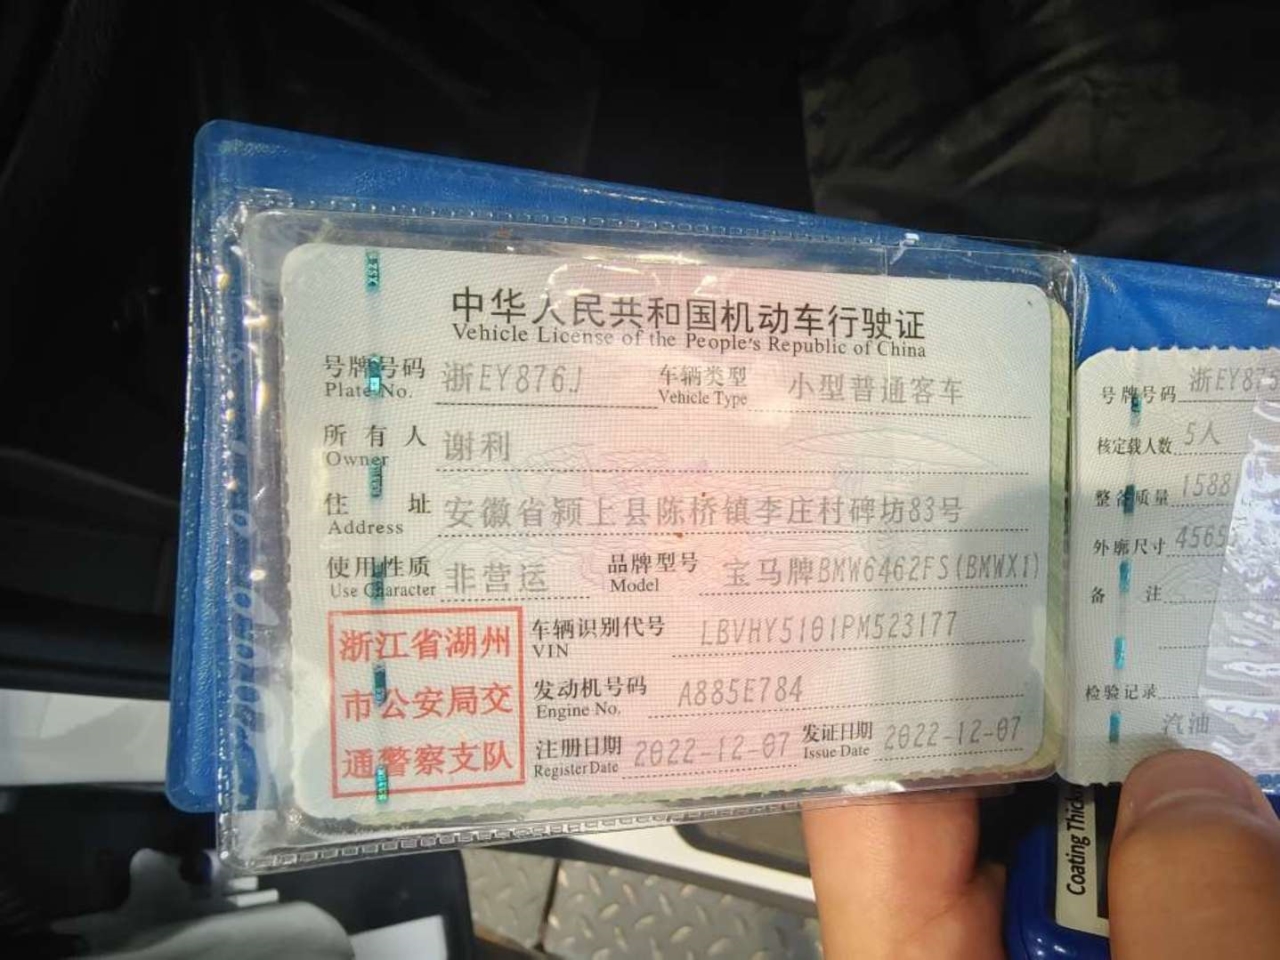 中华人民共和国机动车行驶证
Vehicle License of the People's Republic of China
号牌号码 浙EY876J 车辆类型 小型普通客车
Plate No. Vehicle Type
所有人 谢利
Owner
住址 安徽省颍上县陈桥镇李庄村碑坊83号
Address
使用性质 非营运 品牌型号 宝马牌BMW6462FS(BMWX1)
Use Character Model
浙江省湖州
市公安局交
通警察支队
车辆识别代号 LBVHY5101PM523177
VIN
发动机号码 A885E784
Engine No.
注册日期 2022-12-07 发证日期 2022-12-07
Register Date Issue Date
号牌号码 浙EY876
核定载人数 5人
整备质量 1588
外廓尺寸 4565
备注
检验记录
汽油
Coating Thick